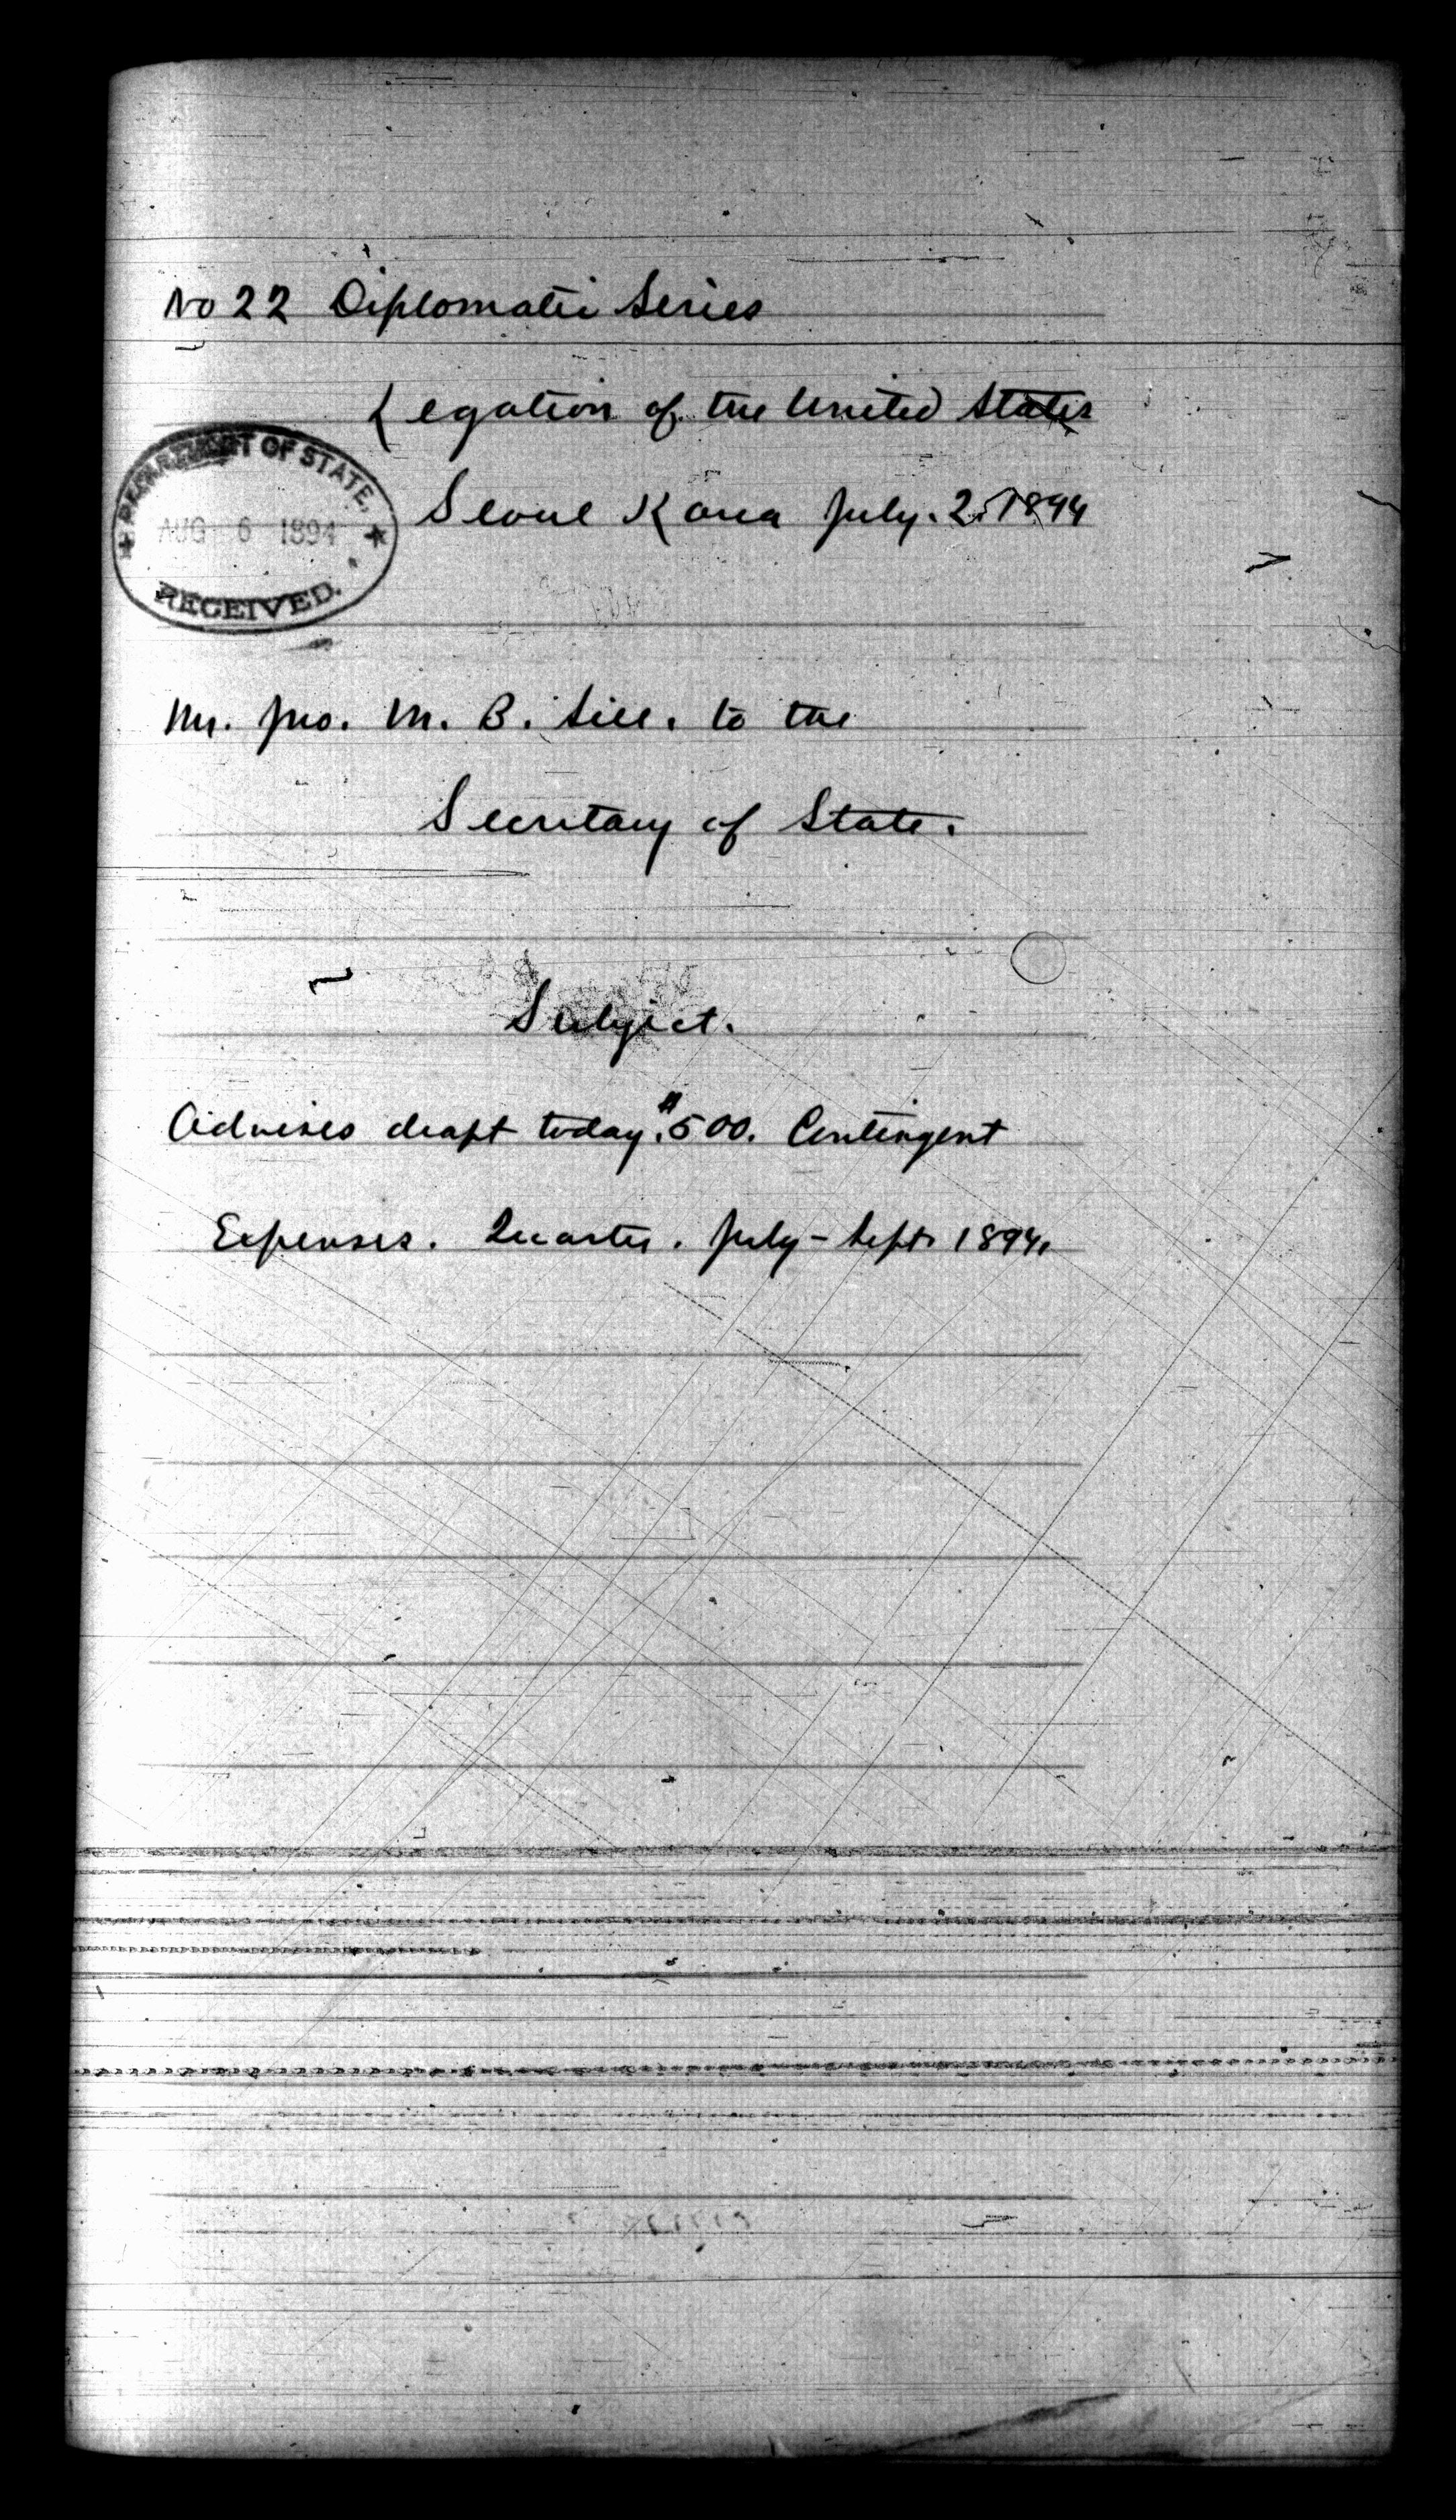 No 22 Diplomatic Series
Legation of the United States
Seoul Korea July. 2. 1894
DEPARTMENT OF STATE,
AUG 6 1894
RECEIVED.
Mr. Jno. M. B. Sill. to the
Secretary of State.
Subject.
Advises draft today. $500. Contingent
Expenses. Quarter. July - Sept. 1894.